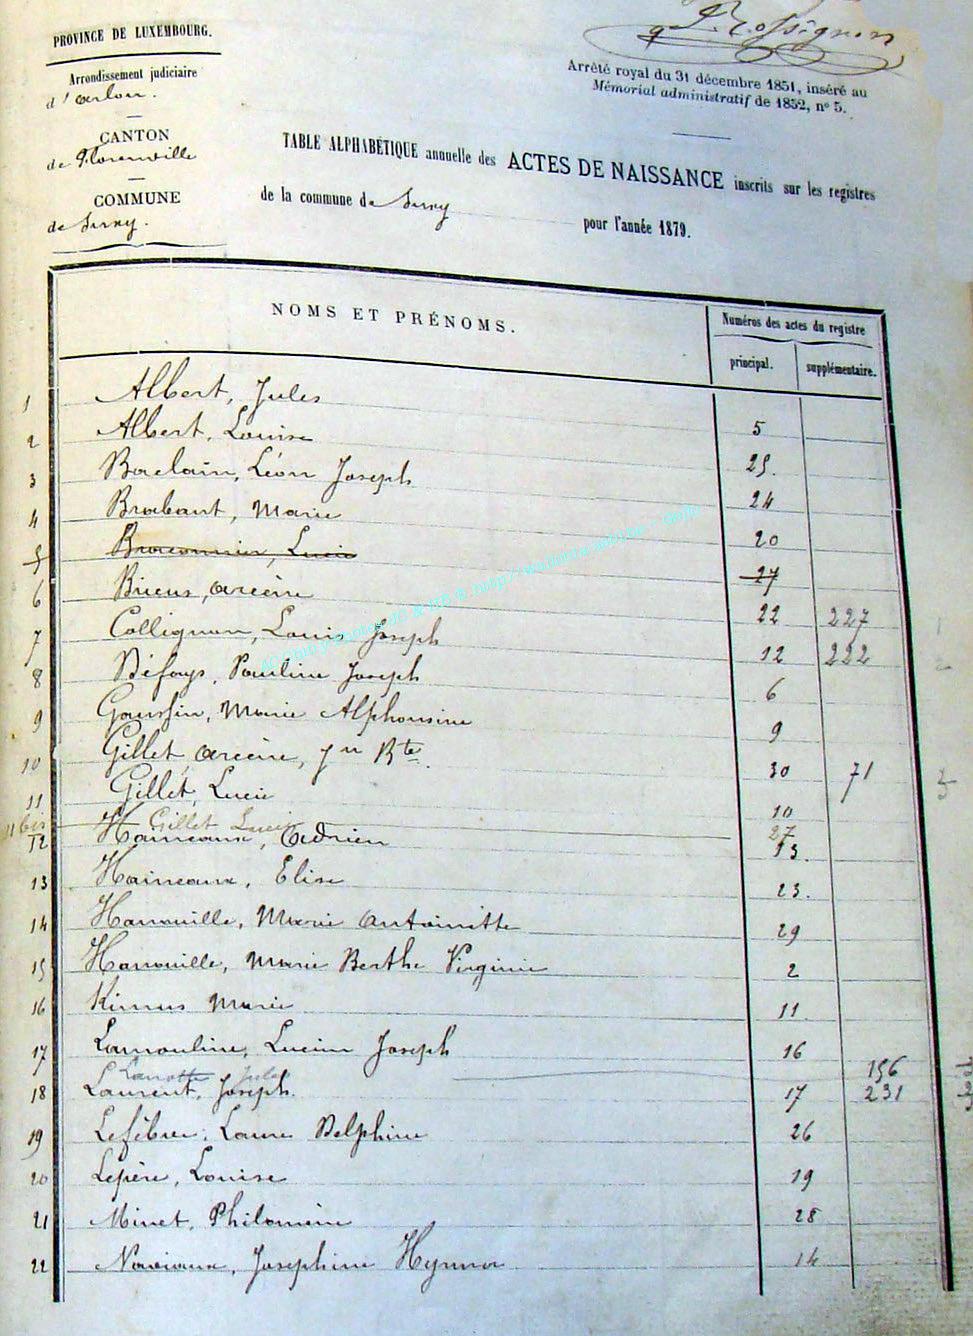 PROVINCE DE LUXEMBOURG.
Arrondissement judiciaire
d'Arlon.
CANTON
de Florenville
COMMUNE
de Suxy.
Rossignon
Arrêté royal du 31 décembre 1851, inséré au
Mémorial administratif de 1852, nº 5.
TABLE ALPHABÉTIQUE annuelle des ACTES DE NAISSANCE inscrits sur les registres
de la commune de Suxy pour l'année 1879.
NOMS ET PRÉNOMS.
Numéros des actes du registre
principal. supplémentaire.
1 Albert, Jules 5
2 Albert, Louise 25.
3 Baclain, Léon Joseph 24
4 Brabant, Marie 20
5 Braconnier, Lucie 27
6 Brieus, Arcène 22 227
7 Collignon, Louis Joseph 12 222
8 Défays, Pauline Joseph 6
9 Goussin, Marie Alphonsine 9
10 Gillet Arcène, Jn Bte. 30 71
11 Gillet, Lucie 10
11 bis Gillet Lucie 27
12 Haineaux, Adrien 13.
13 Haineaux, Elise 23.
14 Hanouille, Marie Antoinette 29
15 Hanouille, Marie Berthe Virginie 2
16 Kimus Marie 11
17 Lamouline, Lucien Joseph 16
Lanotte Jules 156
18 Laurent, Joseph. 17 231
19 Lefèbvre, Laure Delphine 26
20 Lepère, Louise 19
21 Minet, Philomène 28
22 Naviaux, Joséphine Hymna 14